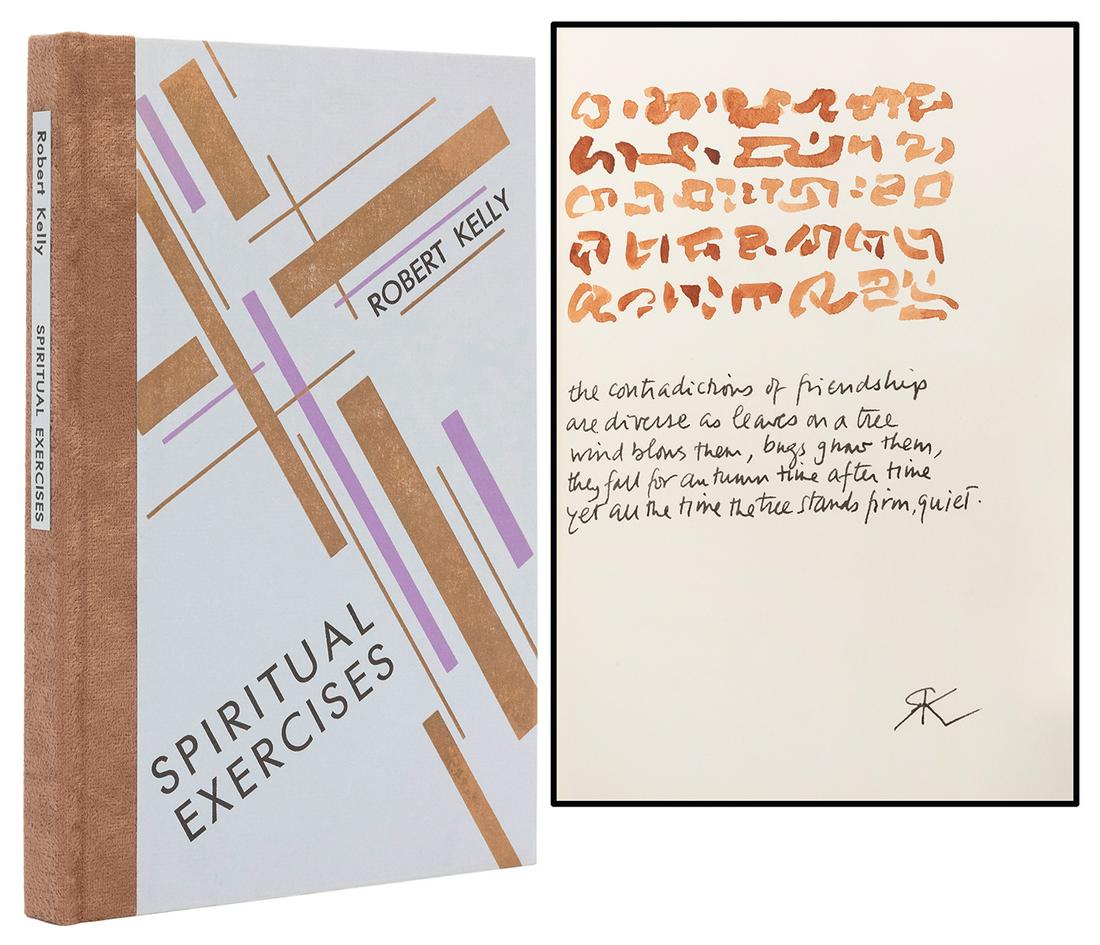 Robert Kelly SPIRITUAL EXERCISES
ROBERT KELLY
SPIRITUAL
EXERCISES
the contradictions of friendship
are diverse as leaves on a tree
wind blows them, bugs gnaw them,
they fall for autumn time after time
yet all the time the tree stands firm, quiet.
RK